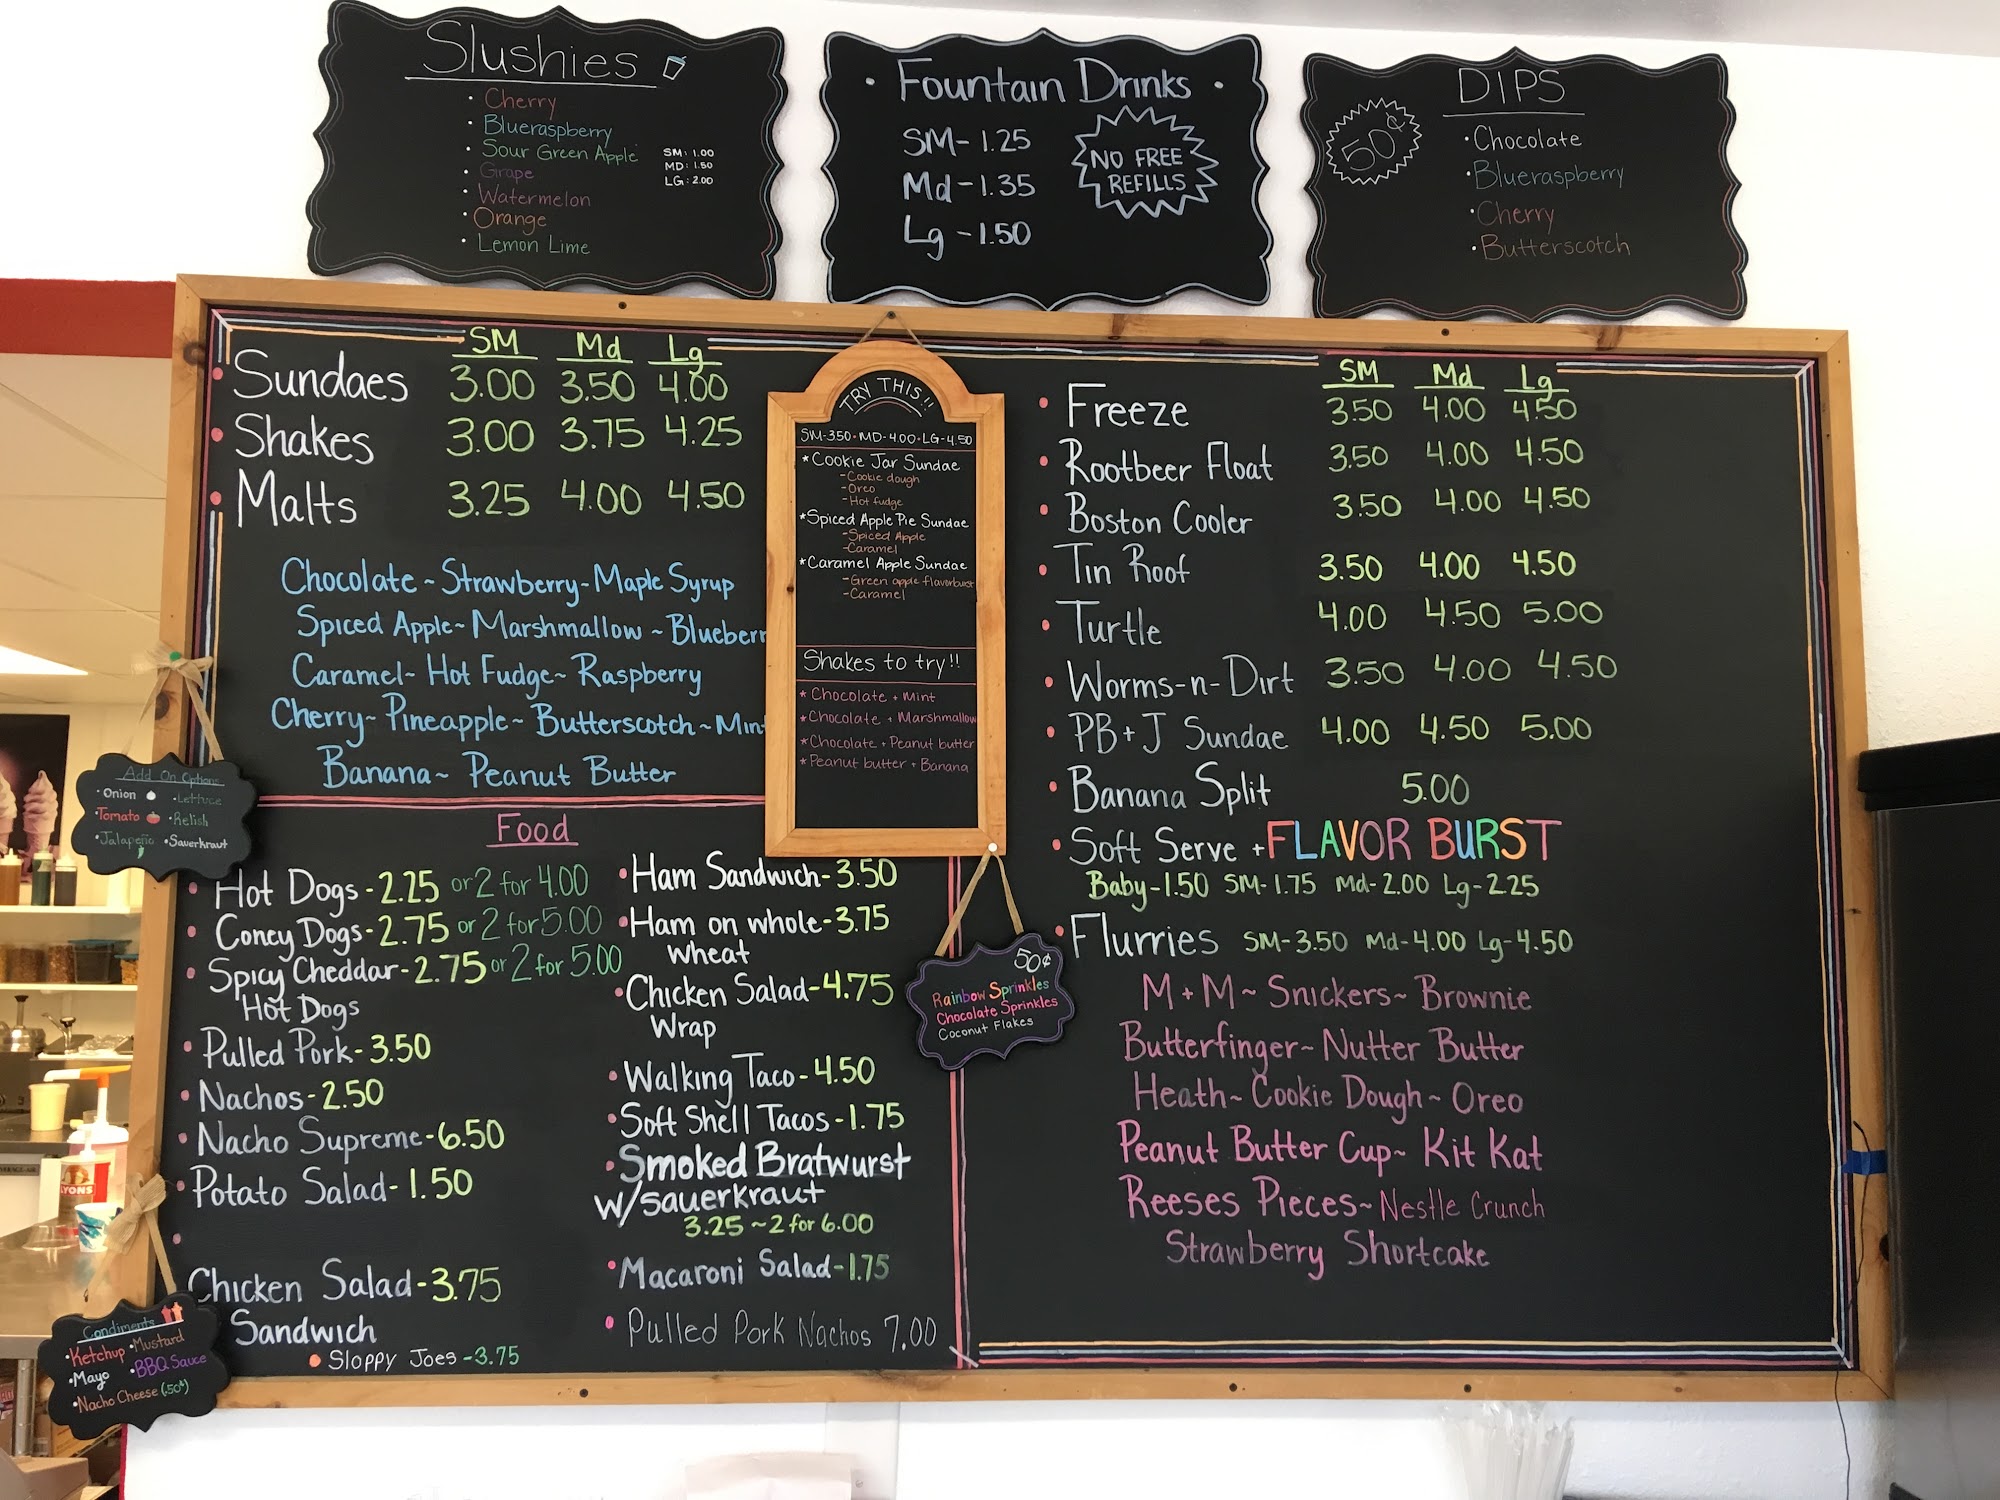 Slushies
• Cherry
• Blueraspberry
• Sour Green Apple
• Grape
• Watermelon
• Orange
• Lemon Lime
SM: 1.00
MD: 1.50
LG: 2.00
• Fountain Drinks •
SM- 1.25
Md -1.35
Lg -1.50
NO FREE
REFILLS
DIPS
50¢
• Chocolate
• Blueraspberry
• Cherry
• Butterscotch
SM Md Lg
• Sundaes 3.00 3.50 4.00
• Shakes 3.00 3.75 4.25
• Malts 3.25 4.00 4.50
Chocolate ~ Strawberry ~ Maple Syrup
Spiced Apple ~ Marshmallow ~ Blueberr
Caramel ~ Hot Fudge ~ Raspberry
Cherry ~ Pineapple ~ Butterscotch ~ Mint
Banana ~ Peanut Butter
TRY THIS!!
SM-3.50 • MD-4.00 • LG-4.50
* Cookie Jar Sundae
- Cookie dough
- Oreo
- Hot fudge
* Spiced Apple Pie Sundae
- Spiced Apple
- Caramel
* Caramel Apple Sundae
- Green apple flavorburst
- Caramel
Shakes to try!!
* Chocolate + Mint
* Chocolate + Marshmallow
* Chocolate + Peanut butter
* Peanut butter + Banana
SM Md Lg
• Freeze 3.50 4.00 4.50
• Rootbeer Float 3.50 4.00 4.50
• Boston Cooler 3.50 4.00 4.50
• Tin Roof 3.50 4.00 4.50
• Turtle 4.00 4.50 5.00
• Worms-n-Dirt 3.50 4.00 4.50
• PB+J Sundae 4.00 4.50 5.00
• Banana Split 5.00
• Soft Serve + FLAVOR BURST
Baby-1.50 SM-1.75 Md-2.00 Lg-2.25
• Flurries SM-3.50 Md-4.00 Lg-4.50
M+M ~ Snickers ~ Brownie
Butterfinger ~ Nutter Butter
Heath ~ Cookie Dough ~ Oreo
Peanut Butter Cup ~ Kit Kat
Reeses Pieces ~ Nestle Crunch
Strawberry Shortcake
50¢
Rainbow Sprinkles
Chocolate Sprinkles
Coconut Flakes
Add On Options
• Onion • Lettuce
• Tomato • Relish
• Jalapeño • Sauerkraut
Food
• Hot Dogs - 2.25 or 2 for 4.00
• Coney Dogs - 2.75 or 2 for 5.00
• Spicy Cheddar - 2.75 or 2 for 5.00
Hot Dogs
• Pulled Pork - 3.50
• Nachos - 2.50
• Nacho Supreme - 6.50
• Potato Salad - 1.50
•
Chicken Salad - 3.75
Sandwich
• Sloppy Joes - 3.75
• Ham Sandwich - 3.50
• Ham on whole - 3.75
wheat
• Chicken Salad - 4.75
Wrap
• Walking Taco - 4.50
• Soft Shell Tacos - 1.75
• Smoked Bratwurst
w/sauerkraut
3.25 ~ 2 for 6.00
• Macaroni Salad - 1.75
• Pulled Pork Nachos 7.00
Condiments
• Ketchup • Mustard
• Mayo • BBQ Sauce
• Nacho Cheese (.50¢)
LYONS